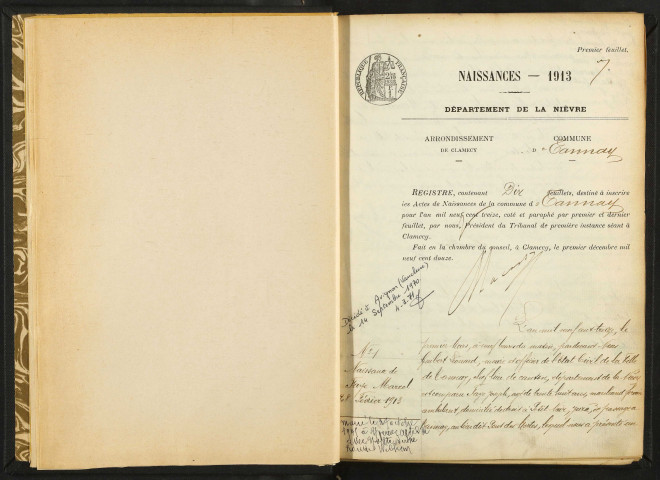 Premier feuillet.
NAISSANCES — 1913
7.
DÉPARTEMENT DE LA NIÈVRE
RÉPUBLIQUE FRANÇAISE
ARRONDISSEMENT
DE CLAMECY
COMMUNE
D e Tannay
REGISTRE, contenant Dix feuillets, destiné à inscrire
les Actes de Naissances de la commune d e Tannay
pour l'an mil neuf cent treize, coté et paraphé par premier et dernier
feuillet, par nous, Président du Tribunal de première instance séant à
Clamecy.
Fait en la chambre du conseil, à Clamecy, le premier décembre mil
neuf cent douze.
Décédé à Avignon (Vaucluse)
le 14 Septembre 1970
N° 1
Naissance de
Marcel
Février 1913
L'an mil neuf cent treize, le
premier Mars, à neuf heures du matin, pardevant Nous
maire et officier de l'état Civil de la Ville
de Tannay, chef lieu de canton, département de la Nièvre
est comparu âgé de trente huit ans, marchand forain
ambulant, domicilié de droit à Jura, de passage à
Tannay, au lieu dit lequel nous a présenté un